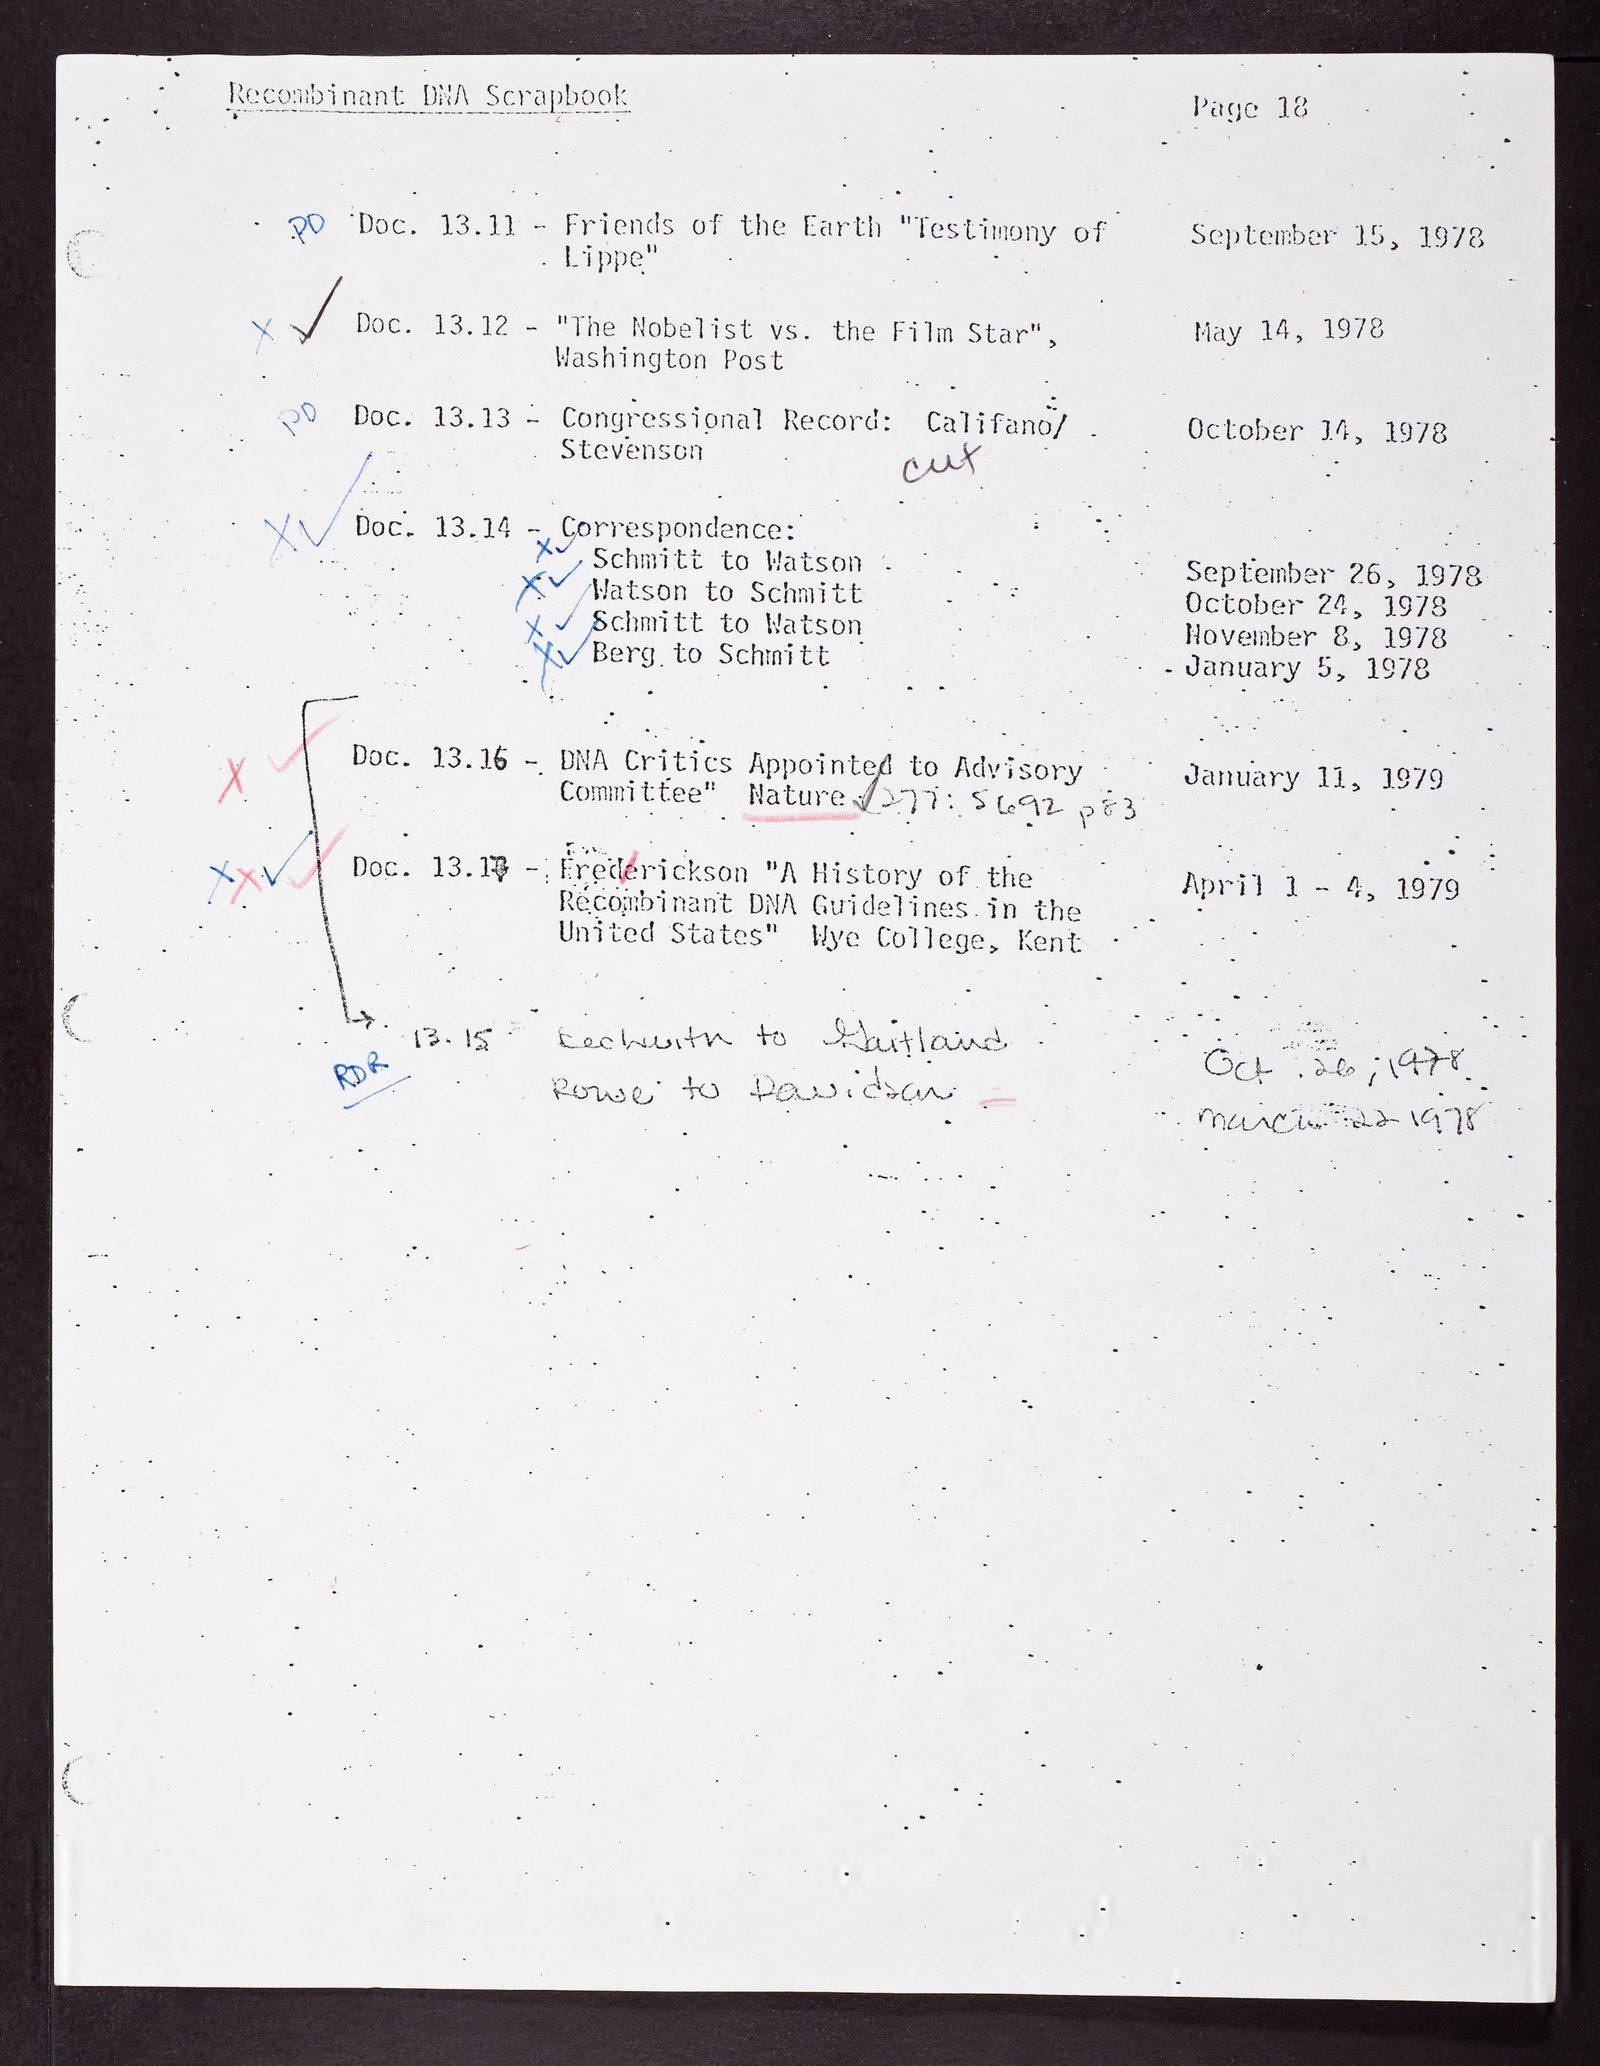 Recombinant DNA Scrapbook Page 18
PD Doc. 13.11 - Friends of the Earth "Testimony of September 15, 1978
Lippe"
X ✓ Doc. 13.12 - "The Nobelist vs. the Film Star", May 14, 1978
Washington Post
PD Doc. 13.13 - Congressional Record: Califano/ October 14, 1978
Stevenson
cut
X ✓ Doc. 13.14 - Correspondence:
X ✓ Schmitt to Watson September 26, 1978
X ✓ Watson to Schmitt October 24, 1978
X ✓ Schmitt to Watson November 8, 1978
X ✓ Berg to Schmitt January 5, 1978
X ✓ Doc. 13.16 - DNA Critics Appointed to Advisory January 11, 1979
Committee" Nature ✓ 277: 5692 p83
X X ✓ ✓ Doc. 13.17 - Frederickson "A History of the April 1 - 4, 1979
Recombinant DNA Guidelines in the
United States" Wye College, Kent
13.15 to Gartland Oct. 26, 1978
RDR Rowe to Davidson March 22 1978